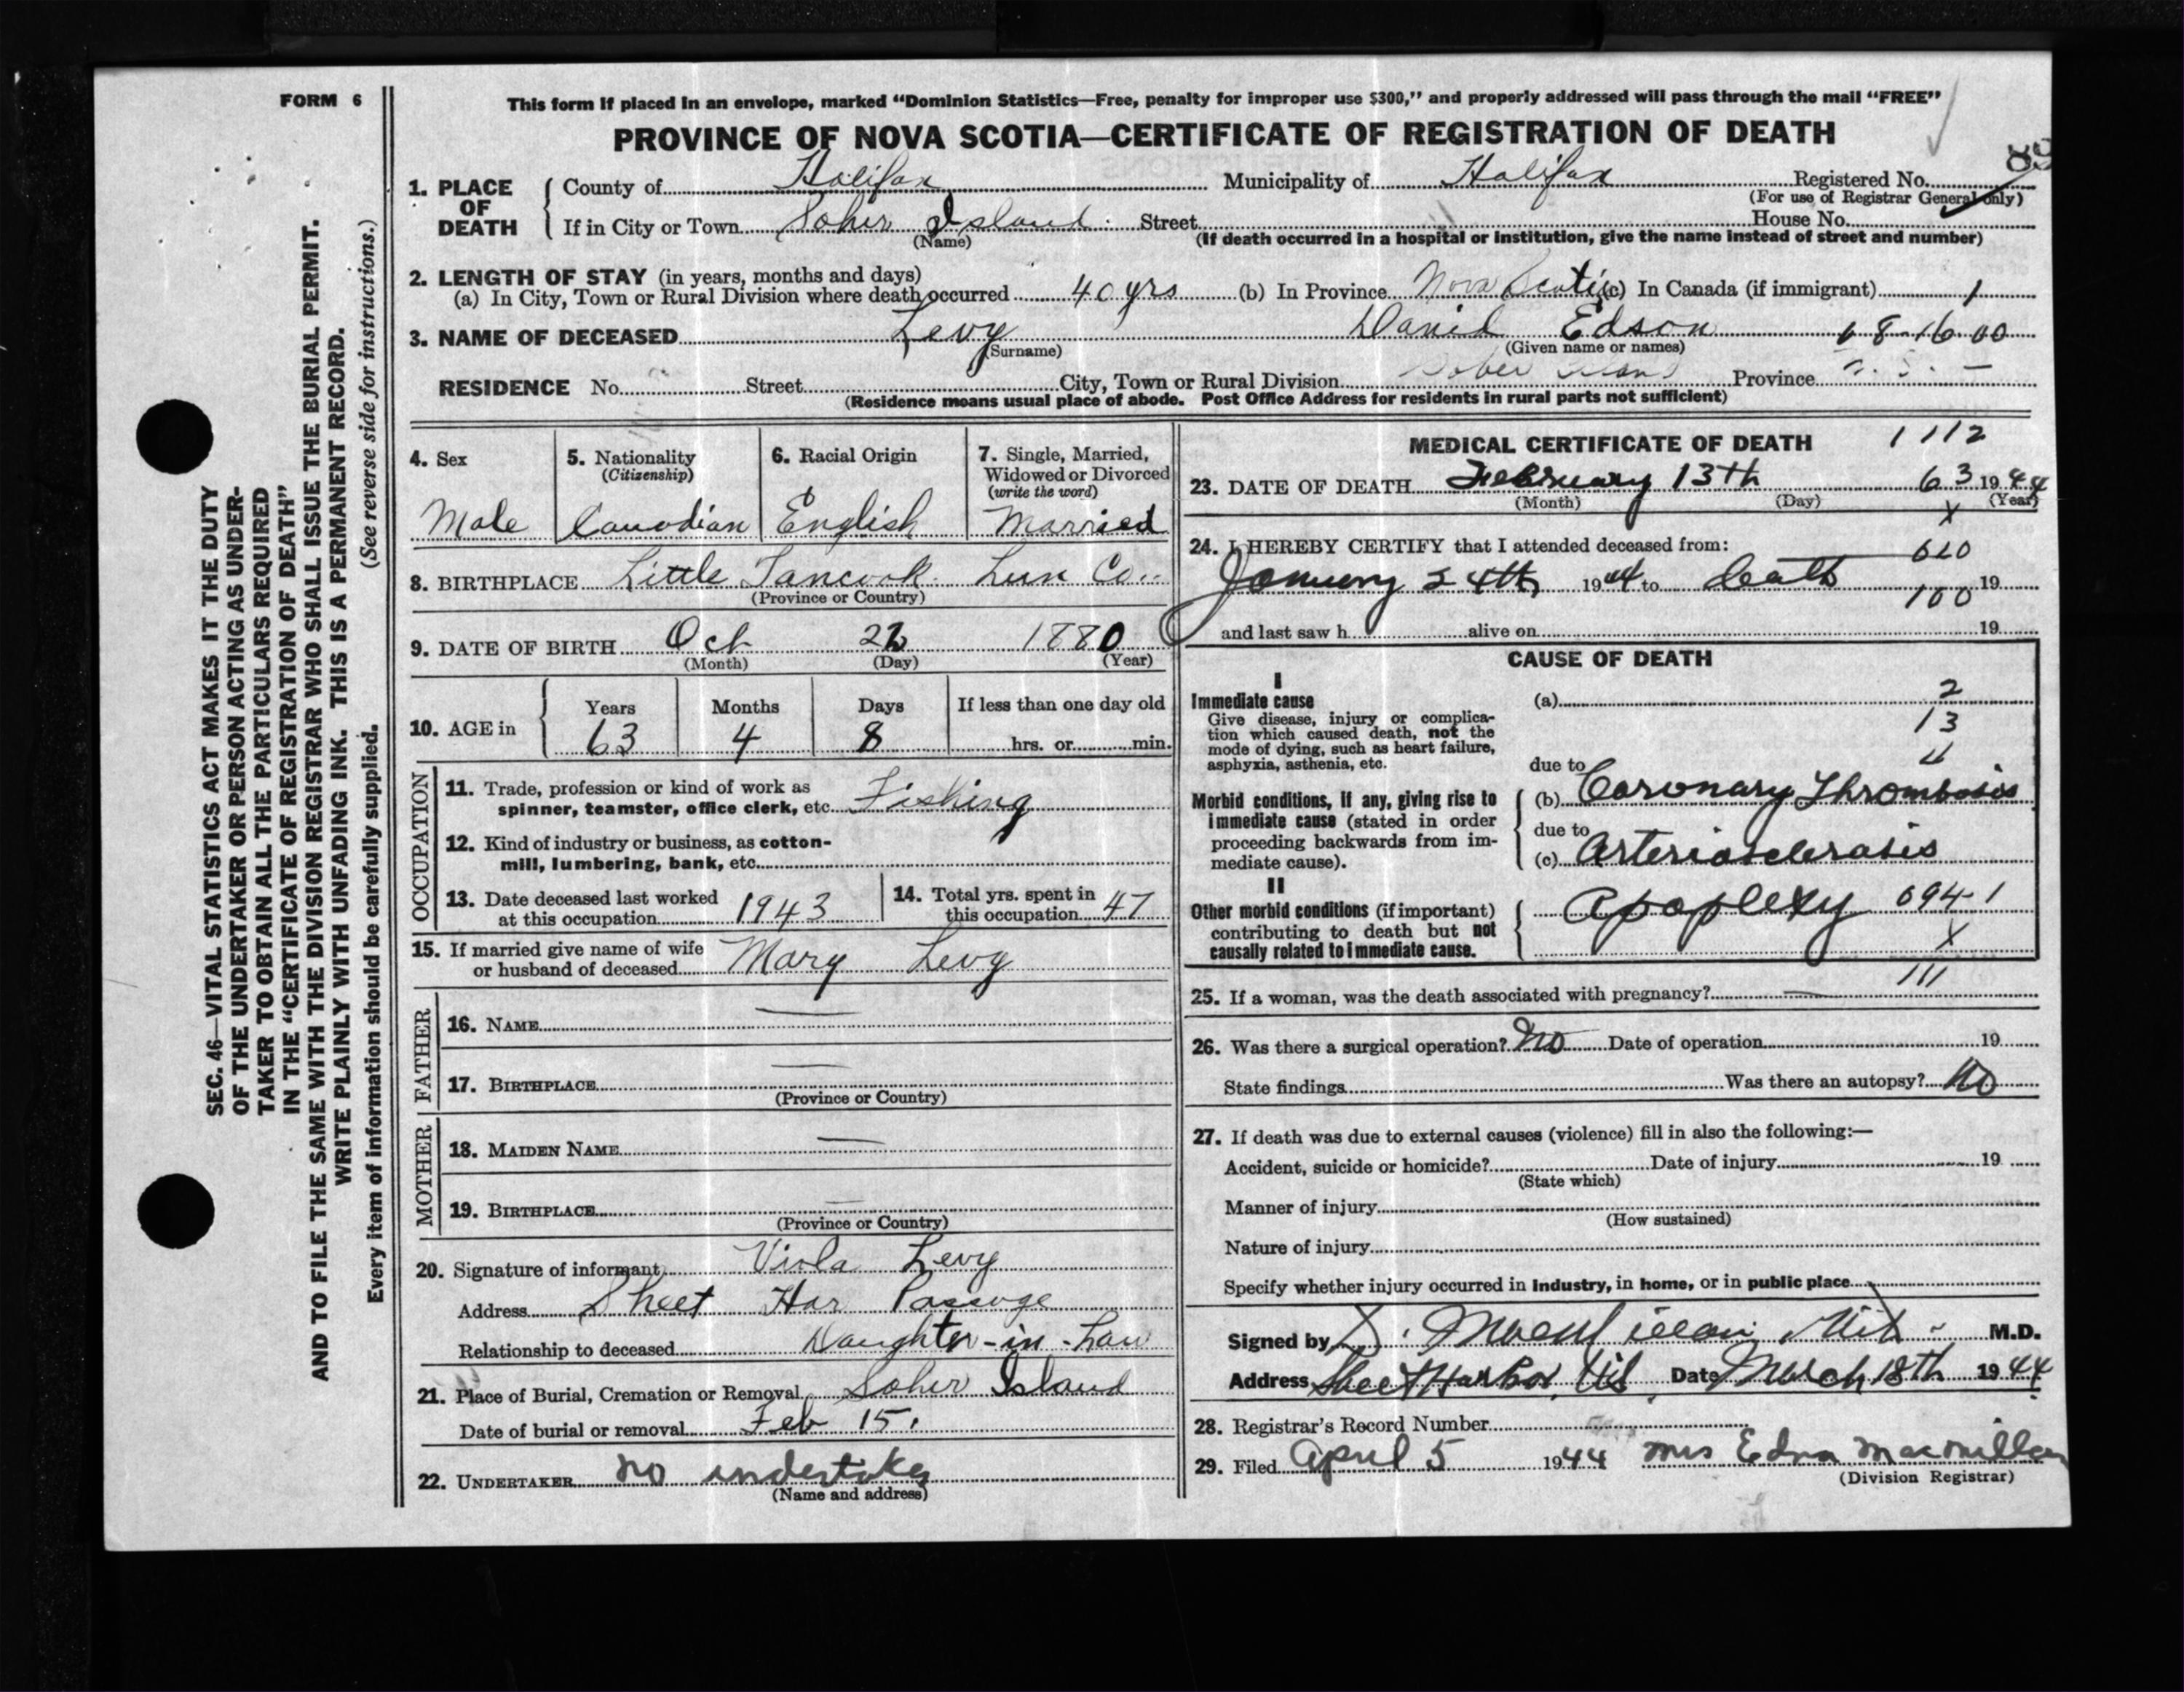 FORM 6
This form if placed in an envelope, marked “Dominion Statistics—Free, penalty for improper use $300,” and properly addressed will pass through the mail “FREE”
PROVINCE OF NOVA SCOTIA—CERTIFICATE OF REGISTRATION OF DEATH
1. PLACE OF DEATH
County of Halifax Municipality of Halifax Registered No.
(For use of Registrar General only)
If in City or Town Soher Island Street House No.
(Name) (If death occurred in a hospital or institution, give the name instead of street and number)
2. LENGTH OF STAY (in years, months and days)
(a) In City, Town or Rural Division where death occurred 40 yrs (b) In Province Nova Scotia (c) In Canada (if immigrant) 1
3. NAME OF DECEASED Levy David Edson 18-16 00
(Surname) (Given name or names)
RESIDENCE No. Street City, Town or Rural Division Province N.S.
(Residence means usual place of abode. Post Office Address for residents in rural parts not sufficient)
SEC. 46—VITAL STATISTICS ACT MAKES IT THE DUTY
OF THE UNDERTAKER OR PERSON ACTING AS UNDER-
TAKER TO OBTAIN ALL THE PARTICULARS REQUIRED
IN THE “CERTIFICATE OF REGISTRATION OF DEATH”
AND TO FILE THE SAME WITH THE DIVISION REGISTRAR WHO SHALL ISSUE THE BURIAL PERMIT.
WRITE PLAINLY WITH UNFADING INK. THIS IS A PERMANENT RECORD.
Every item of information should be carefully supplied. (See reverse side for instructions.)
4. Sex
5. Nationality
(Citizenship)
6. Racial Origin
7. Single, Married,
Widowed or Divorced
(write the word)
Male Canadian English Married
8. BIRTHPLACE Little Tancook Lun Co..
(Province or Country)
9. DATE OF BIRTH Oct 22 1880
(Month) (Day) (Year)
10. AGE in
Years Months Days If less than one day old
63 4 8 hrs. or min.
OCCUPATION
11. Trade, profession or kind of work as
spinner, teamster, office clerk, etc. Fishing
12. Kind of industry or business, as cotton-
mill, lumbering, bank, etc.
13. Date deceased last worked
at this occupation 1943
14. Total yrs. spent in
this occupation 47
15. If married give name of wife
or husband of deceased Mary Levy
FATHER
16. NAME —
17. BIRTHPLACE —
(Province or Country)
MOTHER
18. MAIDEN NAME —
19. BIRTHPLACE —
(Province or Country)
20. Signature of informant Viola Levy
Address Sheet Har Passage
Relationship to deceased Daughter-in-Law
21. Place of Burial, Cremation or Removal Soher Island
Date of burial or removal Feb 15.
22. UNDERTAKER no undertaker
(Name and address)
MEDICAL CERTIFICATE OF DEATH 1112
23. DATE OF DEATH February 13th 63 1944
(Month) (Day) (Year)
X
24. I HEREBY CERTIFY that I attended deceased from:
610
January 24th 1944 to death 19
100
and last saw h alive on 19
CAUSE OF DEATH
I
Immediate cause
Give disease, injury or complica-
tion which caused death, not the
mode of dying, such as heart failure,
asphyxia, asthenia, etc.
(a) 2
13
due to
Morbid conditions, if any, giving rise to
immediate cause (stated in order
proceeding backwards from im-
mediate cause).
(b) Coronary Thrombosis
due to
(c) Arteriosclerosis
II
Other morbid conditions (if important)
contributing to death but not
causally related to immediate cause.
Apoplexy 094-1
X
111
25. If a woman, was the death associated with pregnancy? —
26. Was there a surgical operation? No Date of operation 19
State findings Was there an autopsy? No
27. If death was due to external causes (violence) fill in also the following:—
Accident, suicide or homicide? Date of injury 19
(State which)
Manner of injury
(How sustained)
Nature of injury
Specify whether injury occurred in industry, in home, or in public place
Signed by M.D.
Address Sheet Harbor, Date March 18th 1944
28. Registrar's Record Number
29. Filed April 5 1944 Mrs Edna Macmillan
(Division Registrar)